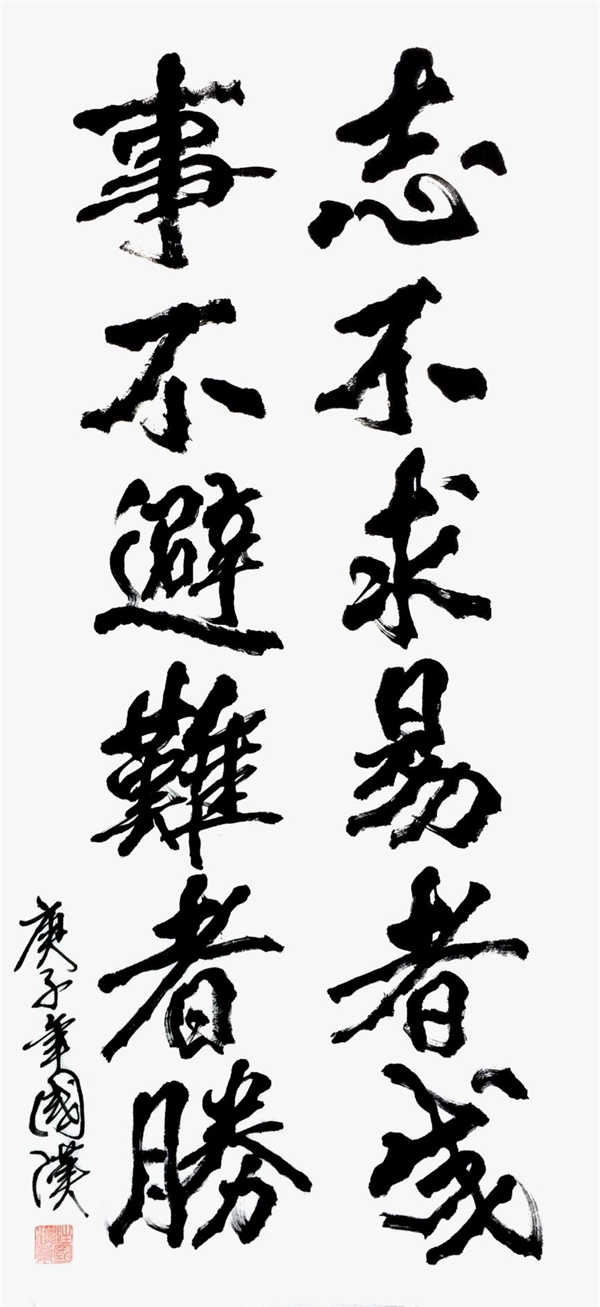 志不求易者成
事不避難者勝
庚子年國漢